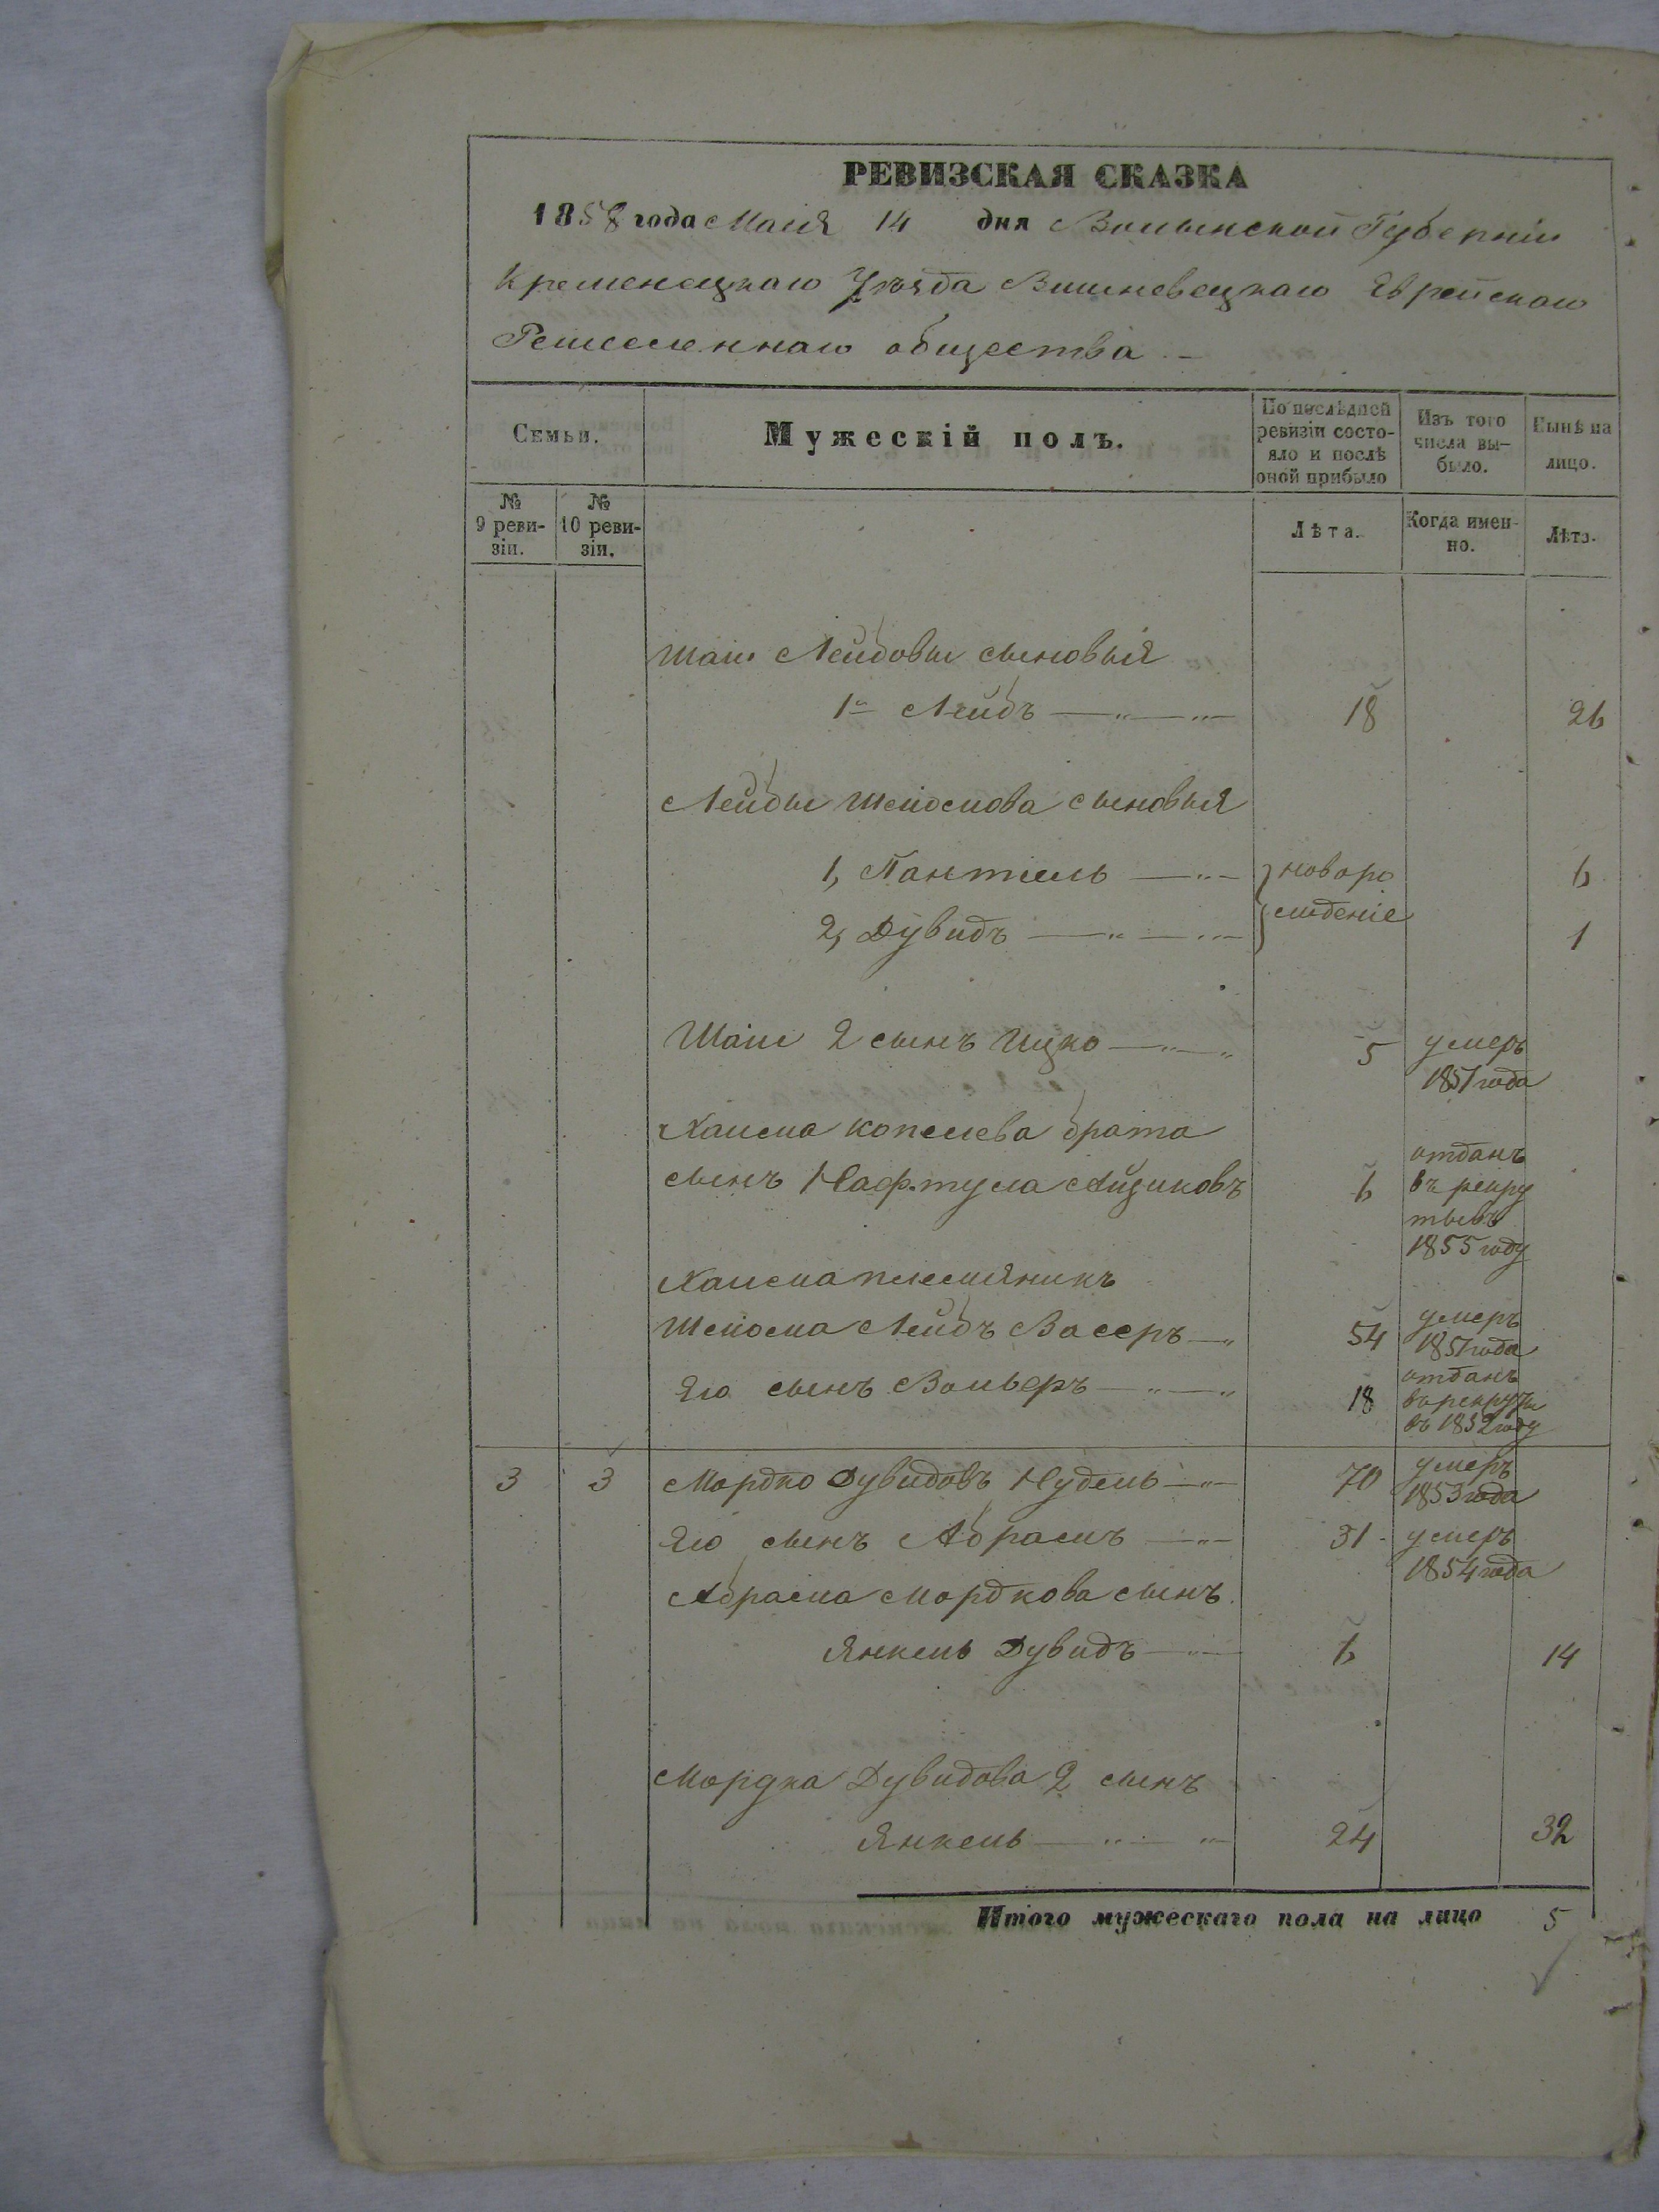 РЕВИЗСКАЯ СКАЗКА
1858 года Маія 14 дня Волынской Губерніи
Кременецкаго Уѣзда Вишневецкаго Еврейскаго
Ремесленнаго общества. –
Семьи.
Мужескій полъ.
По послѣдней ревизіи состояло и послѣ оной прибыло
Изъ того числа вы-было.
Нынѣ на лицо.
№ 9 реви-зіи.
№ 10 реви-зіи.
Лѣта.
Когда имен-но.
Лѣта.
Лейбовы сыновья
1й Лейбъ — " — " 18 26
Лейбы Шліомова сыновья
1, Пантіель — " — } новоро 6
2, Дувидъ — " — " } жденіе 1
2 сынъ Ицко — " — " 5 умеръ
1857 года
Хаима Копелева брата отданъ
сынъ Нафтула Айзиковъ 6 въ рекру
ты въ
1855 году
Хаима племяникъ
Шліома Лейбъ Васеръ — " 54 умеръ
1857 года
Его сынъ Вольберъ — " — " 18 отданъ
въ рекруты
въ 1852 году
3 3 Мордко Дувидовъ Нудель — " 70 умеръ
1853 года
Его сынъ Абрамъ — " — 31 умеръ
1854 года
Абрама Мордкова сынъ
Янкель Дувидъ — " — 6 14
Мордка Дувидова 2 сынъ
Янкель — " — " 24 32
Итого мужескаго пола на лицо 5